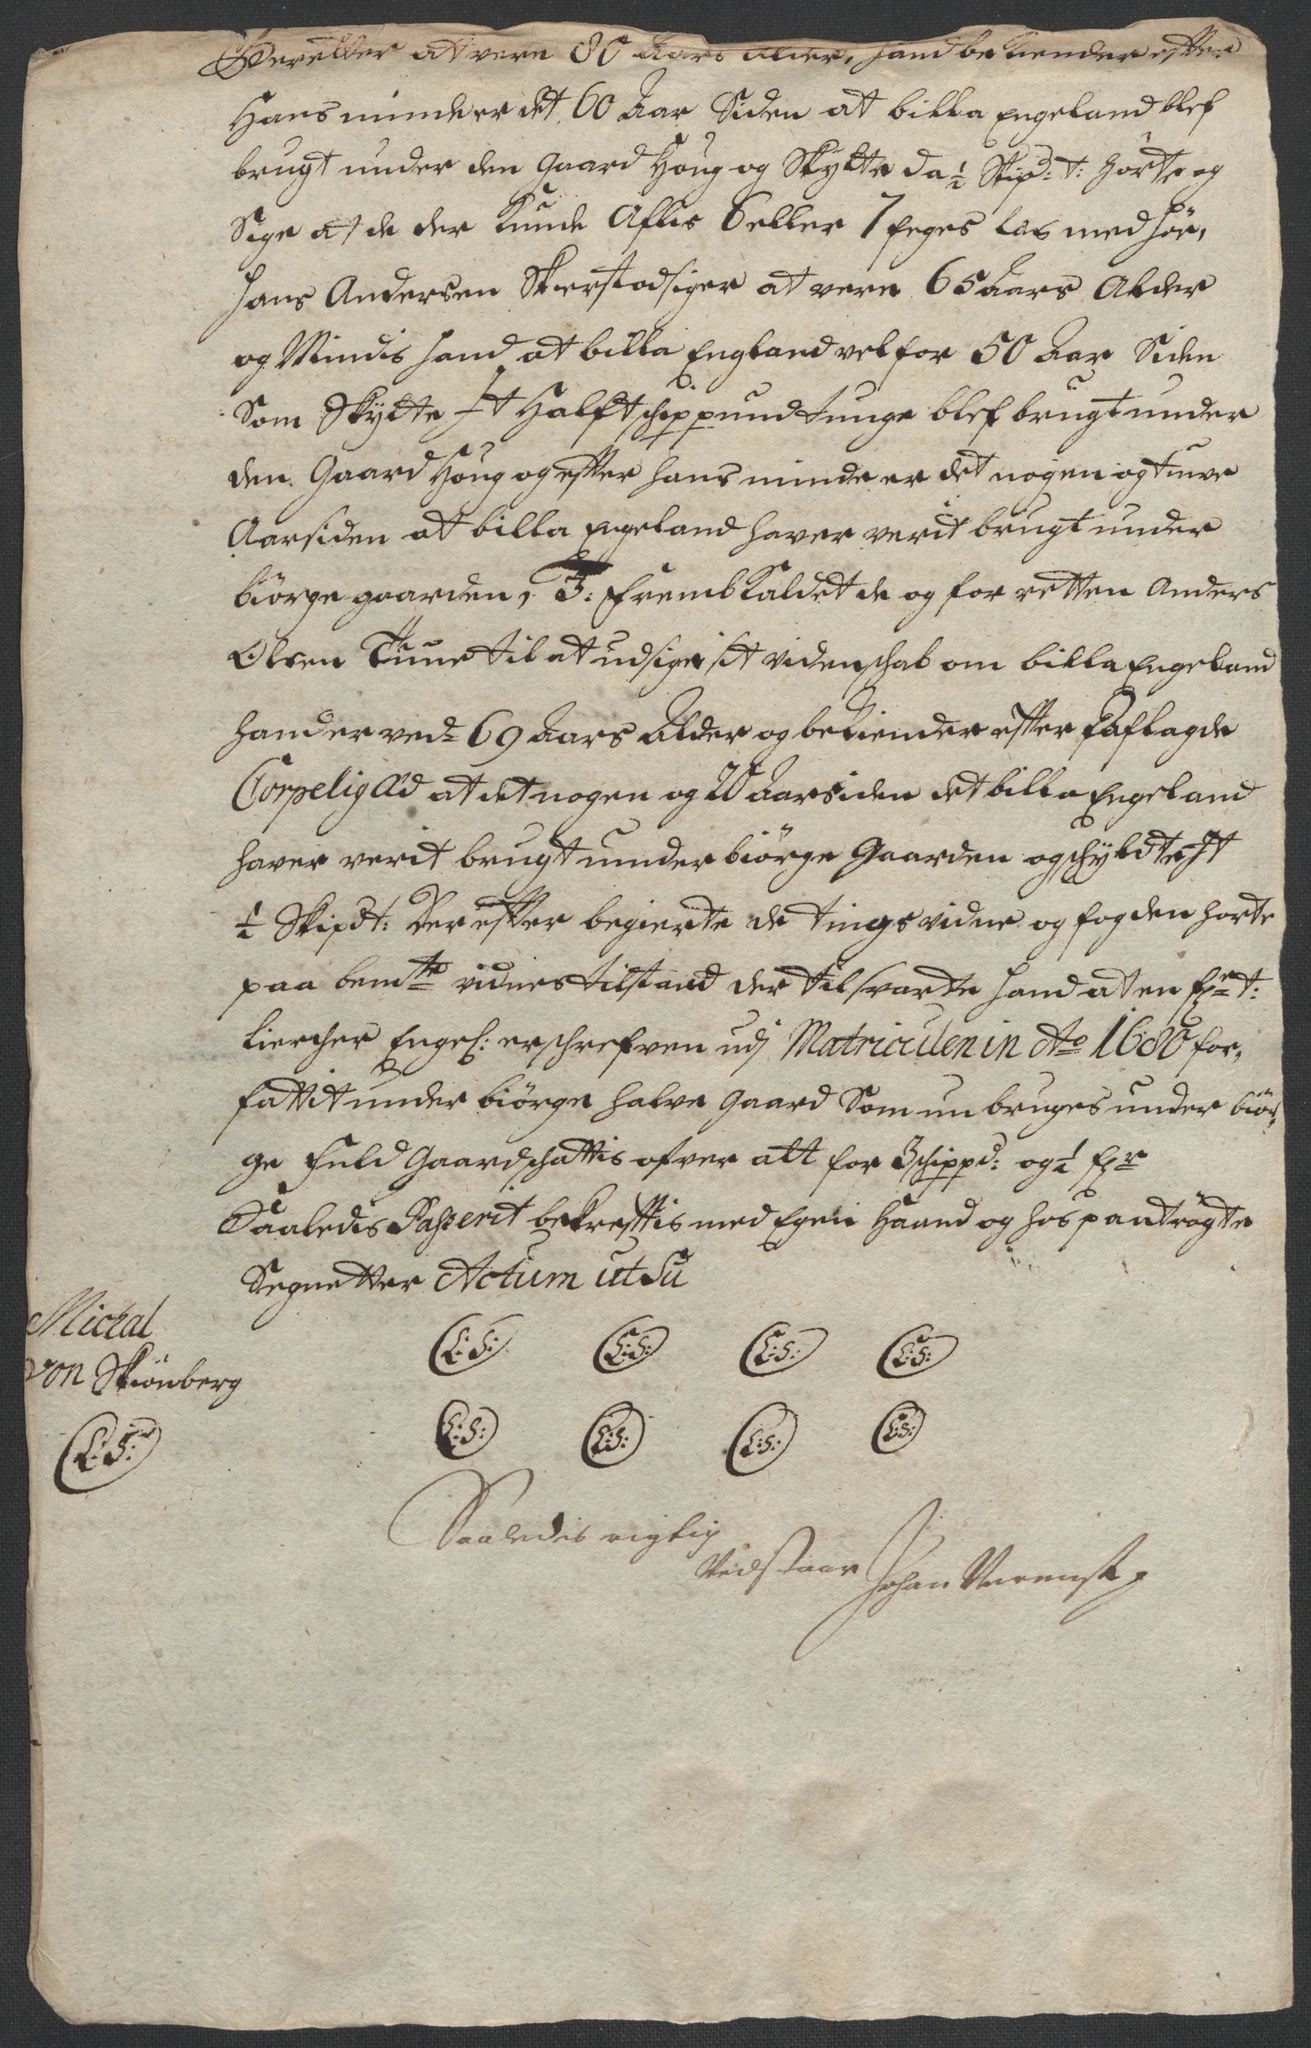 Beretter at vere 80 Aars alder, hand bekiender efter
Hans minde er det 60 Aar Siden at billa Engeland blef
brugt under den Gaard Houg og Skylte da 1/2 Skipd: t: hörte og
Sige at de der kunde Aflis 6 eller 7 feges las med höe,
Hans Andersen Skierstod siger at vere 65 Aars Alder
og Mindis hand at billa Engeland vel for 50 Aar Siden
Som Skylte It Halft schippund tunge blef brugt under
den Gaard Houg og efter hans minde er det nogen og tiuve
Aar siden at billa Engeland haver verit brugt under
biörge gaarden, 3: frembkaldet de og for retten Anders
Olsen Tune til at udsige sit videnschab om billa Engeland
hand er ved 69 Aars Alder og bekiender efter haflagde
Corpelig Ed at det nogen og 20 Aar siden det billa Engeland
haver verit brugt under biörge Gaarden og schyldte It
1/2 Skipdt: Derefter begierte de tingsvidne og fogden horte
paa bemte vidnes tilstand der til svarte hand at en fr: t:
kiercher Engesl: er schrefven udj Matriculen in Ao 1680 for,
fattit under biörge halve Gaard Som nu bruges under biör,
ge fuld Gaard schattis ofver alt for 3 schippd: og 1/2 fr
Saaledis Passerit bekreftis med Egen Haand og hos pantrögte
Segnetter Actum ut Su
Michal
von Skiönberg
L: S: L: S: L: S: L: S:
L: S: L: S: L: S: L: S:
L: S:
Saaledis rigtig
Vedstaar Johan